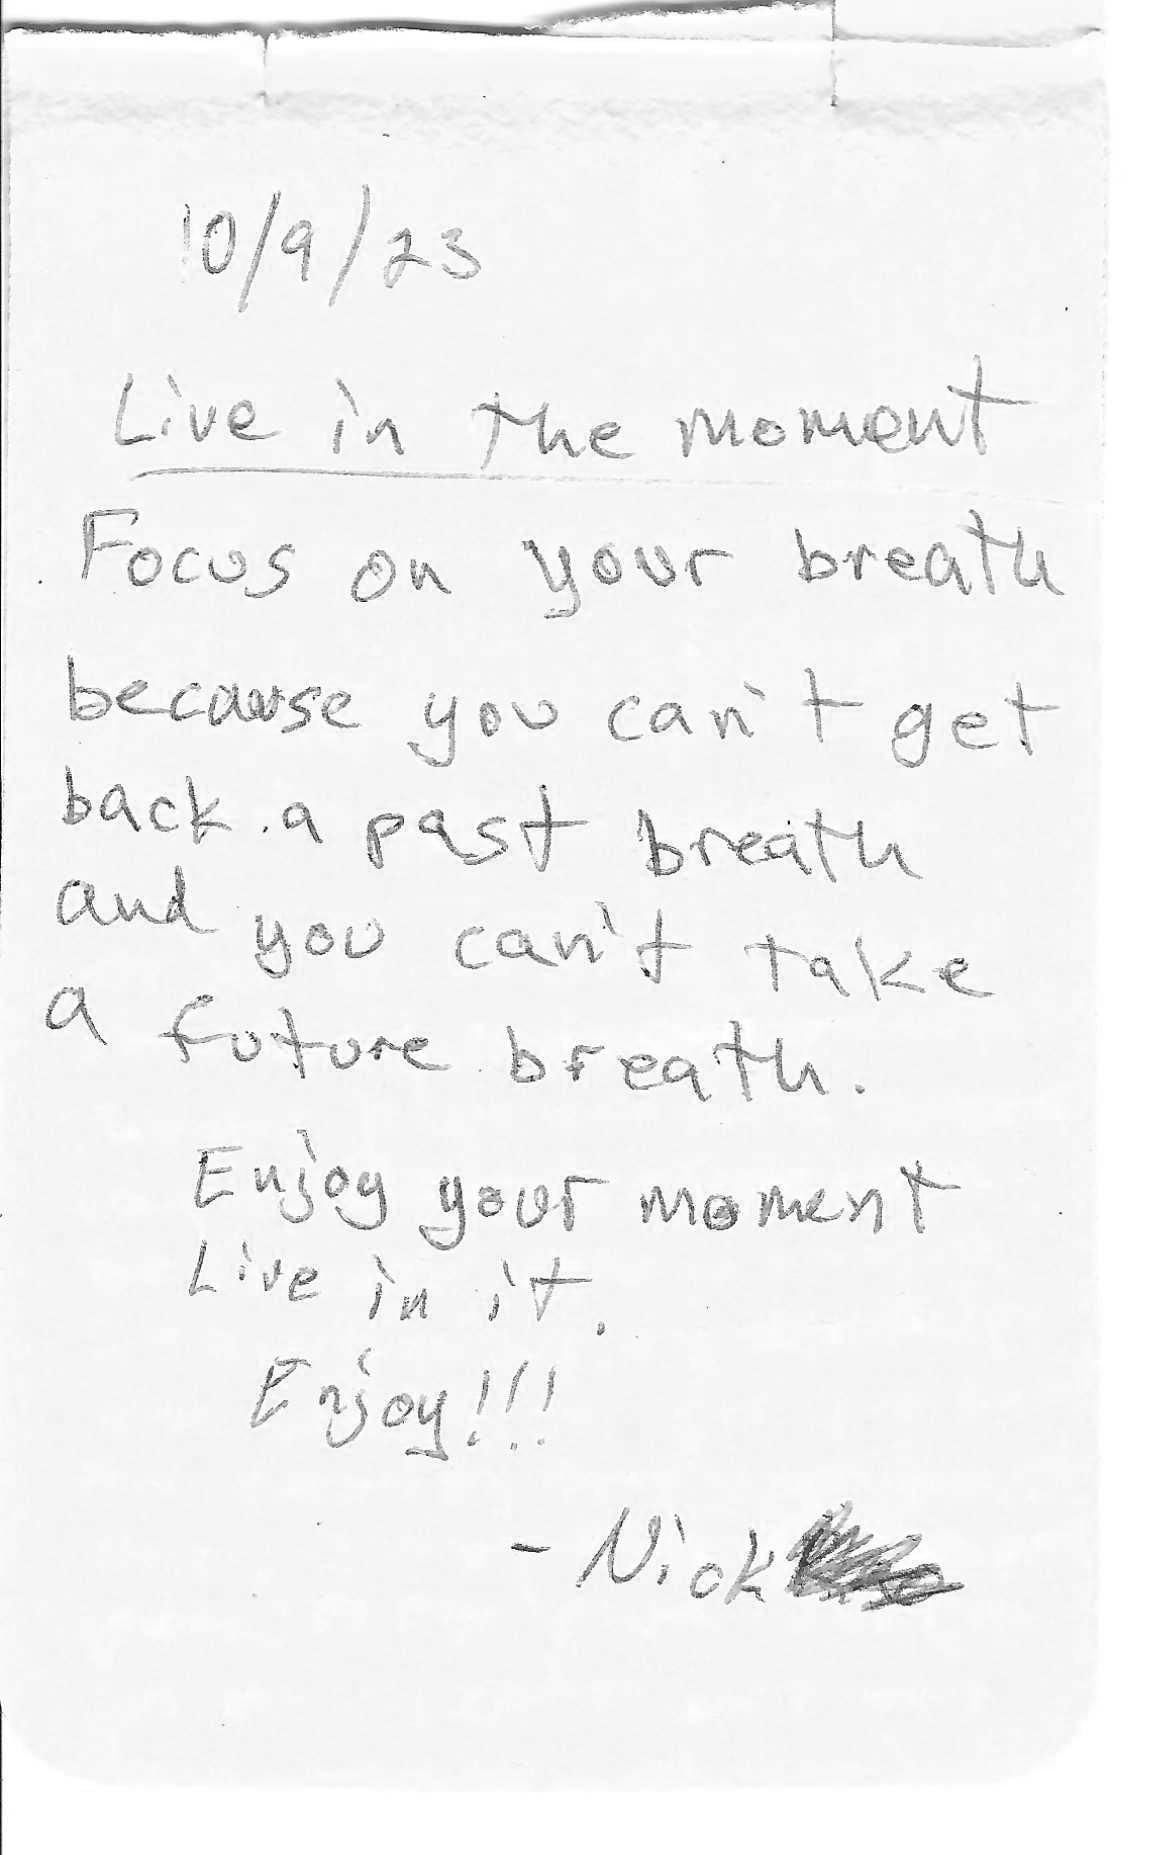 10/9/23
Live in the moment
Focus on your breath
because you can't get
back a past breath
and you can't take
a future breath.
Enjoy your moment
Live in it.
Enjoy!!!
- Nick